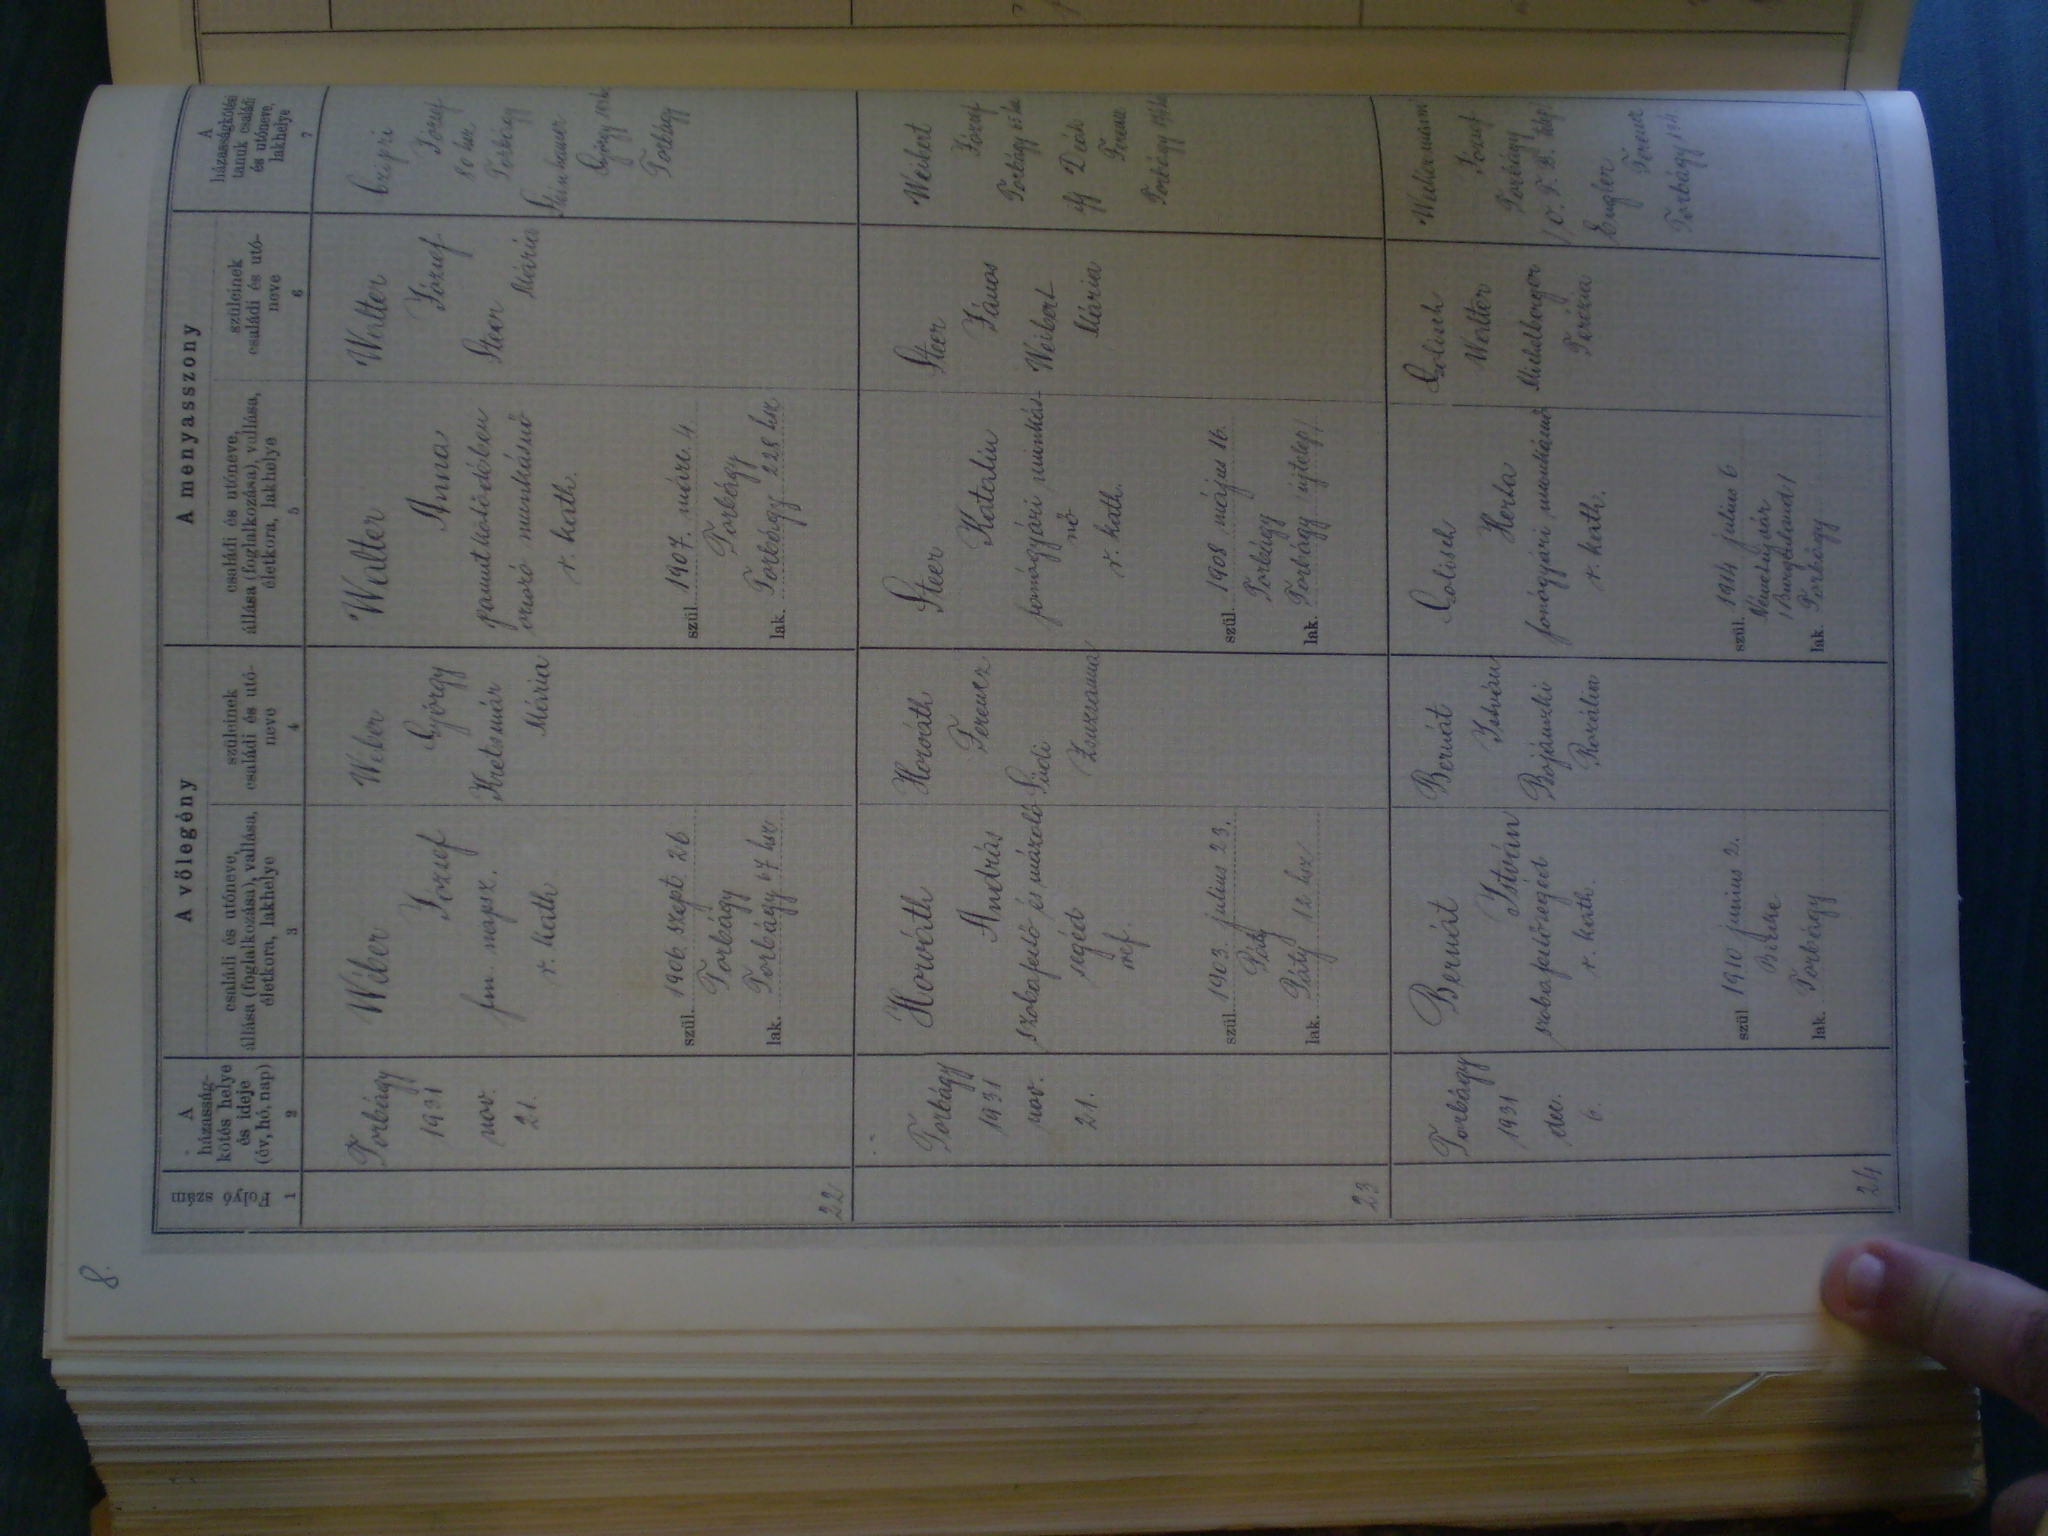 8.
Folyó szám
1
A
házasság-
kötés helye
és ideje
(év, hó, nap)
2
A vőlegény
családi és utóneve,
állása (foglalkozása), vallása,
életkora, lakhelye
3
szüleinek
családi és utó-
neve
4
A menyasszony
családi és utóneve,
állása (foglalkozása), vallása,
életkora, lakhelye
5
szüleinek
családi és utó-
neve
6
A
házasságkötési
tanuk családi
és utóneve,
lakhelye
7
22
Torbágy
1931
nov.
21.
Wéber
József
fm. napsz.
r. kath
szül. 1906. szept. 26
Torbágy
lak. Torbágy 67 hsz
Wéber
György
Kretsmár
Mária
Walter
Anna
pamutkötödében
munkásnő
r. kath.
szül. 1907. márc. 4.
Torbágy
lak. Torbágy 228 hsz
Walter
József
Steer
Mária
Czipri
József
80 hsz
Torbágy
György
Torbágy
23
Torbágy
1931
nov.
21.
Horváth
András
szobafestő és mázoló
segéd
ref.
szül. 1903. julius 23.
Páty
lak. Páty 12 hsz
Horváth
Ferencz
Südi
Zsuzsanna
Steer
Katalin
fonógyári munkás-
nő
r. kath.
szül. 1908 május 16.
Torbágy
lak. Torbágy ujtelep
Steer
János
Weibert
Mária
Weibert
József
Torbágy
ifj Deák
Ferenc
Torbágy
24
Torbágy
1931
dec.
6.
Bernát
István
szobafestősegéd
r. kath.
szül 1910 junius 2.
Biske
lak. Torbágy
Bernát
István
Bojánszki
Rozália
Czolisch
Herta
fonógyári munkásnő
r. kath.
szül. 1914 julius 6
Németujvár
/Burgenland/
lak. Torbágy
Czolisch
Walter
Terézia
József
Torbágy
Engler
Ferenc
Torbágy